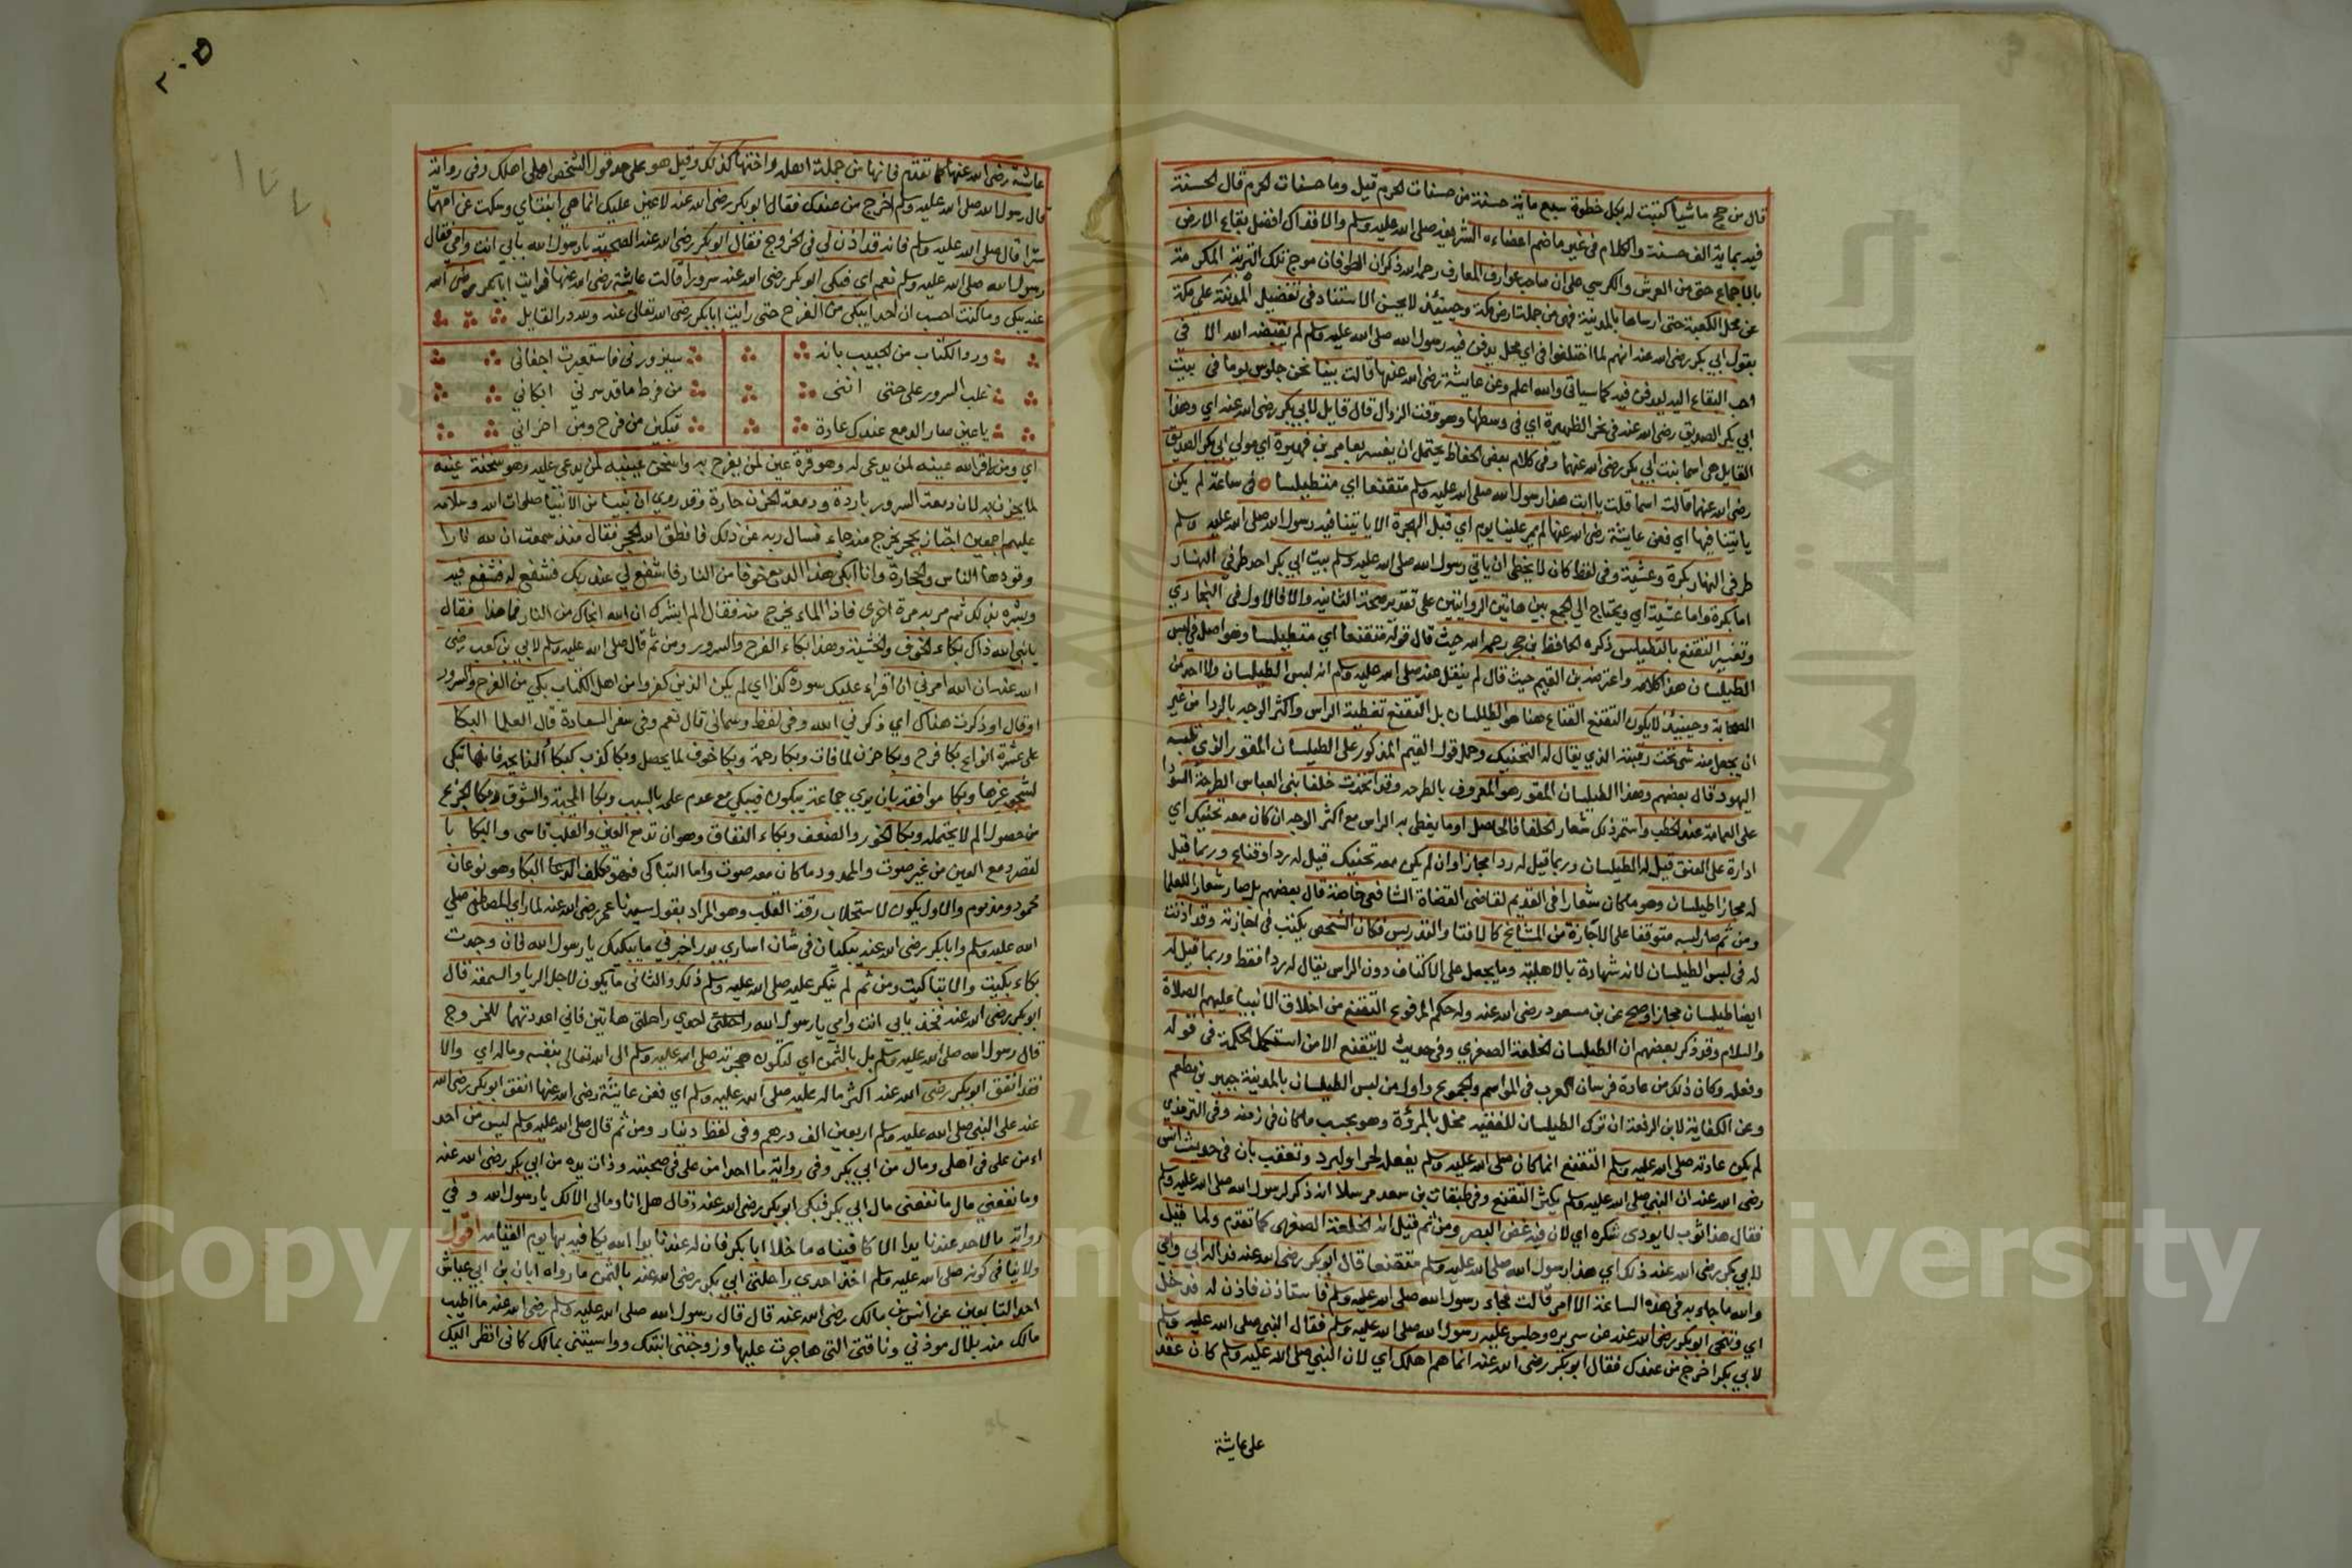 قال من حج ماشيا كتبت له بكل خطوة سبع ماية حسنة من حسنات الحرم قيل وما حسنات الحرم قال الحسنة
فيه بماية الف حسنة والكلام في غير ما ضم اعضاءه الشريفه صلى الله عليه وسلم والا فذاك افضل بقاع الارض
بالاجماع حتى من العرش والكرسي على ان صاحب عوارف المعارف رحمه الله ذكر ان الطوفان موج تلك التربة المكرمة
عن محل الكعبة حتى ارساها بالمدينة فهي من جملة ارض مكة وحينئذ لا يحسن الاستناد في تفضيل المدينة على مكة
بقول ابي بكر رضي الله عنه انهم لما اختلفوا في اي محل يدفن فيه رسول الله صلى الله عليه وسلم لم يقبضه الله الا في
احب البقاع اليه ليدفن فيه كما سياتي والله اعلم وعن عايشة رضي الله عنها قالت بينا نحن جلوس يوما في بيت
ابي بكر الصديق رضي الله عنه في نحر الظهيرة اي في وسطها وهو وقت الزوال قال قايل لابي بكر رضي الله عنه اي وهذا
القايل هي اسما بنت ابي بكر رضي الله عنهما وفي كلام بعض الحفاظ يحتمل ان يفسر بعامر بن فهيرة اي مولى ابي بكر الصديق
رضي الله عنهما قالت اسما قلت يا ابت هذا رسول الله صلى الله عليه وسلم متقنعا اي متطيلسا في ساعة لم يكن
ياتينا فيها اي فعن عايشة رضي الله عنها لم يمر علينا يوم اي قبل الهجرة الا ياتينا فيه رسول الله صلى الله عليه وسلم
طرفي النهار بكرة وعشية وفي لفظ كان لا يخطى ان ياتي رسول الله صلى الله عليه وسلم بيت ابي بكر احد طرفي النهار
اما بكرة واما عشية اي ويحتاج الى الجمع بين هاتين الروايتين على تقدير صحة الثانية والا فالاول في البخاري
وتفسير التقنع بالتطيلس ذكره الحافظ بن حجر رحمه الله حيث قال قوله متقنعا اي متطيلسا وهو اصل في لبس
الطيلسان هذا كلامه واعترضه بن القيم حيث قال لم ينقل عنه صلى الله عليه وسلم انه لبس الطيلسان ولا احد من
الصحابة وحينئذ لا يكون التقنع القناع هنا هو الطيلسان بل التقنع تغطية الراس واكثر الوجه بالردا من غير
ان يجعل منه شي تحت رقبته الذي يقال له التحنيك وحمل قول القيم المذكور على الطيلسان المقور الذي تلبسه
اليهود قال بعضهم وهذا الطيلسان المقور هو المعروف بالطرحه وقد اتخذت خلفا بني العباس الطرحة السودا
على العمامة عند الخطب واستمر ذلك شعار الخلفا فالحاصل ان ما يغطى به الراس مع اكثر الوجه ان كان معه تحنيك اي
ادارة على العنق قيل له الطيلسان وربما قيل له ردا مجازا وان لم يكن معه تحنيك قيل له ردا وقناع وربما قيل
له مجازا طيلسان وهو ما كان شعارا في القديم لقاضي القضاة الشافعي خاصة قال بعضهم بل صار شعار للعلما
ومن ثم صار لبسه متوقفا على الاجازة من المشايخ كالافتا والتدريس فكان الشخص يكتب في اجازته وقد اذنت
له في لبس الطيلسان لانه شهادة بالاهلية وما يجعل على الاكتاف دون الراس يقال له ردا فقط وربما قيل له
ايضا طيلسان مجازا وصح عن بن مسعود رضي الله عنه وله حكم المرفوع التقنع من اخلاق الانبيا عليهم الصلاة
والسلام وقد ذكر بعضهم ان الطيلسان الخلعة الصغرى وفي حديث لا يتقنع الا من استكمل الحكمة في قوله
وفعله وكان ذلك من عادة فرسان العرب في المواسم والجموع واول من لبس الطيلسان بالمدينة جبير بن مطعم
وعن الكفاية لابن الرفعة ان ترك الطيلسان للفقيه مخل بالمروة وهو بحسب ما كان في زمنه وفي الترمذي
لم يكن عادته صلى الله عليه وسلم التقنع انما كان صلى الله عليه وسلم يفعله لحر او لبرد وتعقب بان في حديث انس
رضي الله عنه ان النبي صلى الله عليه وسلم يكثر التقنع وفي طبقات بن سعد مرسلا انه ذكر لرسول الله صلى الله عليه وسلم
فقال هذا ثوب لا يودى شكره اي لان فيه غض البصر ومن ثم قيل انه الخلعة الصغرى كما تقدم ولما قيل
لابي بكر رضي الله عنه ذلك اي هذا رسول الله صلى الله عليه وسلم متقنعا قال ابو بكر رضي الله عنه فداله ابي وامي
والله ما جاء به في هذه الساعة الا امر قالت فجاء رسول الله صلى الله عليه وسلم فاستاذن فاذن له فدخل
اي وتنحى ابو بكر رضي الله عنه عن سريره وجلس عليه رسول الله صلى الله عليه وسلم فقال النبي صلى الله عليه وسلم
لابي بكر اخرج من عندك فقال ابو بكر رضي الله عنه انما هم اهلك اي لان النبي صلى الله عليه وسلم كان عقد
على عايشة
٢٠٥
عايشة رضي الله عنها كما تقدم فانها من جملة اهله واختها كذلك وقيل هو على حد قول الشخص اهلي اهلك وفي رواية
قال رسول الله صلى الله عليه وسلم اخرج من عندك فقال ابو بكر رضي الله عنه لا عين عليك انما هي ابنتاي وسكت عن امهما
سترا قال صلى الله عليه وسلم فانه قد اذن لي في الخروج فقال ابو بكر رضي الله عنه الصحبة يا رسول الله بابي انت وامي فقال
رسول الله صلى الله عليه وسلم نعم اي فبكى ابو بكر رضي الله عنه سرورا قالت عايشة رضي الله عنها فرايت ابا بكر رضي الله
عنه يبكي وما كنت احسب ان احدا يبكي من الفرح حتى رايت ابا بكر رضي الله تعالى عنه ولله در القايل
ورد الكتاب من الحبيب بانه سيزورني فاستعبرت اجفاني
غلب السرور علي حتى انني من فرط ما قد سرني ابكاني
يا عين صار الدمع عندك عادة تبكين من فرح ومن احزاني
اي ومن اقر الله عينه لمن يدعى له وهو قرة عين لمن يفرح به واسخن عينيه لمن يدعى عليه وهو سخنة عينه
لما يحزن به لان دمعة السرور باردة ودمعة الحزن حارة وقد روي ان نبيا من الانبيا صلوات الله وسلامه
عليهم اجمعين اجتاز بحجر يخرج منه ماء فسال ربه عن ذلك فانطق الله الحجر فقال منذ سمعت ان لله نارا
وقودها الناس والحجارة وانا ابكي هذا الدمع خوفا من النار فاشفع لي عند ربك فشفع له فشفع فيه
وبشره بذلك ثم مر به مرة اخرى فاذا الماء يخرج منه فقال الم ابشرك ان الله انجاك من النار فما هذا فقال
يا نبي الله ذاك بكاء الخوف والخشية وهذا بكاء الفرح والسرور ومن ثم قال صلى الله عليه وسلم لابي بن كعب رضي
الله عنه ان الله امرني ان اقراء عليك سورة كذا اي لم يكن الذين كفروا من اهل الكتاب بكى من الفرح والسرور
وقال او ذكرت هناك اي ذكرني الله وفي لفظ وسماني قال نعم وفي سفر السعادة قال العلما البكا
على عشرة انواع بكا فرح وبكا حزن لما فات وبكا رحمة وبكا خوف لما يحصل وبكا كذب كبكا النايحه فانها تبكي
لشجو غيرها وبكا موافقة بان يرى جماعة يبكون فيبكي مع عدم علمه بالسبب وبكا المحبة والشوق وبكا الجزع
من حصول الم لا يحتمله وبكا الخور والضعف وبكاء النفاق وهو ان تدمع العين والقلب قاسي والبكا با
لقصر دمع العين من غير صوت والممدود ما كان معه صوت واما التباكي فهو تكلف البكا وهو نوعان
محمود ومذموم والاول يكون لاستجلاب رقة القلب وهو المراد بقول سيدنا عمر رضي الله عنه لما راي المصطفى صلى
الله عليه وسلم وابا بكر رضي الله عنه يبكيان في شان اسارى بدر اخبرني ما يبكيك يا رسول الله فان وجدت
بكاء بكيت والا تباكيت ومن ثم لم ينكر عليه صلى الله عليه وسلم ذلك والثاني ما يكون لاجل الريا والسمعة قال
ابو بكر رضي الله عنه فخذ بابي انت وامي يا رسول الله احدى راحلتي هاتين فاني اعددتهما للخروج
قال رسول الله صلى الله عليه وسلم بل بالثمن اي لتكون هجرته صلى الله عليه وسلم الى الله تعالى بنفسه وماله اي والا
فقد انفق ابو بكر رضي الله عنه اكثر ماله عليه صلى الله عليه وسلم اي فعن عايشة رضي الله عنها انفق ابو بكر رضي الله
عنه على النبي صلى الله عليه وسلم اربعين الف درهم وفي لفظ دينار ومن ثم قال صلى الله عليه وسلم ليس من احد
امن علي في اهلي ومال من ابي بكر وفي رواية ما احد امن علي في صحبته وذات يده من ابي بكر رضي الله عنه
وما نفعني مال ما نفعني مال ابي بكر فبكى ابو بكر رضي الله عنه وقال هل انا ومالي الا لك يا رسول الله وفي
رواية ما لاحد عندنا يدا الا كافيناه ما خلا ابا بكر فان له عندنا يدا الله يكافيه بها يوم القيامه اقول
ولا ينافي كونه صلى الله عليه وسلم اخذ احدى راحلتي ابي بكر رضي الله عنه بالثمن ما رواه ابان بن ابي عياش
احد التابعين عن انس بن مالك رضي الله عنه قال قال رسول الله صلى الله عليه وسلم رضي الله عنه ما اطيب
مالك منه بلال موذني وناقتي التي هاجرت عليها وزوجتني ابنتك وواسيتني بمالك كاني انظر اليك